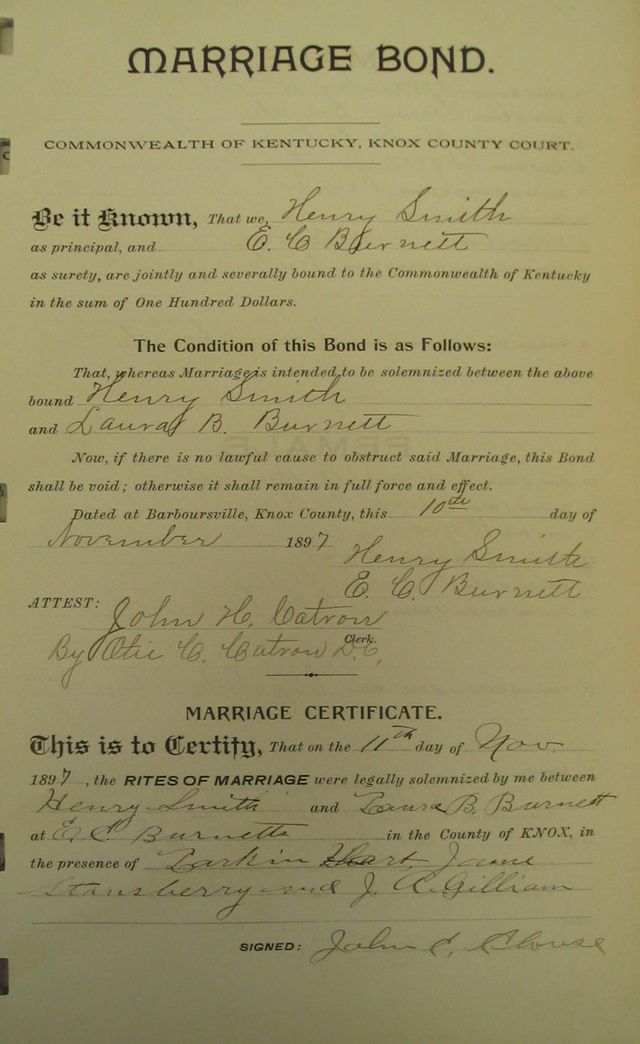 MARRIAGE BOND.
COMMONWEALTH OF KENTUCKY, KNOX COUNTY COURT.
Be it Known, That we, Henry Smith
as principal, and E. C Burnett
as surety, are jointly and severally bound to the Commonwealth of Kentucky
in the sum of One Hundred Dollars.
The Condition of this Bond is as Follows:
That, whereas Marriage is intended to be solemnized between the above
bound Henry Smith
and Laura B. Burnett
Now, if there is no lawful cause to obstruct said Marriage, this Bond
shall be void; otherwise it shall remain in full force and effect.
Dated at Barboursville, Knox County, this 10th day of
November 1897
Henry Smith
E. C. Burnett
ATTEST: John H. Catron
Clerk.
By Otie C. Catron D.C.
MARRIAGE CERTIFICATE.
This is to Certify, That on the 11th day of Nov.
1897, the RITES OF MARRIAGE were legally solemnized by me between
Henry Smith and Laura B. Burnett
at E. C. Burnetts in the County of KNOX, in
the presence of Larkin Hart,
Stansberry and J. A. Gilliam
SIGNED: John C. Clouse